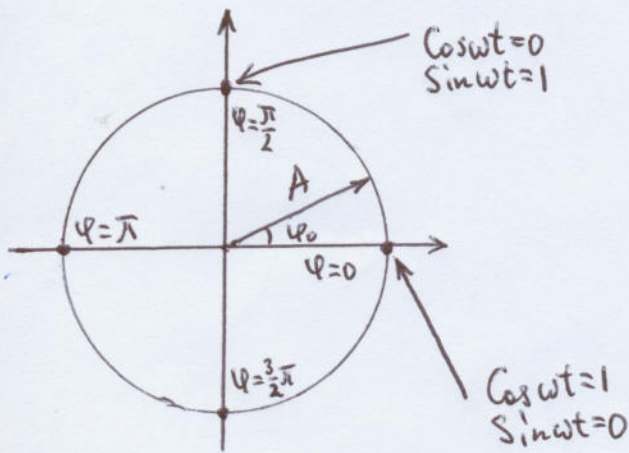 Cosωt=0
Sinωt=1
φ=π/2
A
φ=π
φ₀
φ=0
φ=3/2π
Cosωt=1
Sinωt=0